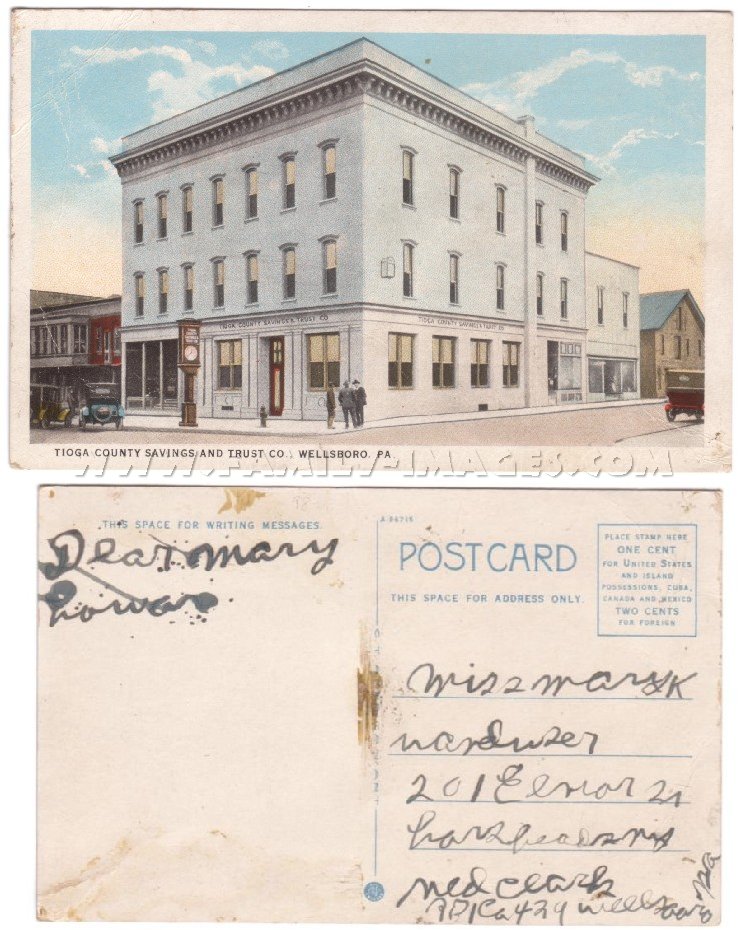 TIOGA COUNTY SAVINGS & TRUST CO.
TIOGA COUNTY SAVINGS & TRUST CO.
TIOGA COUNTY SAVINGS AND TRUST CO., WELLSBORO, PA.
WWW.FAMILY-IMAGES.COM
THIS SPACE FOR WRITING MESSAGES.
Dear mary
A-86715
POST CARD
THIS SPACE FOR ADDRESS ONLY.
PLACE STAMP HERE
ONE CENT
FOR UNITED STATES
AND ISLAND
POSSESSIONS, CUBA,
CANADA AND MEXICO
TWO CENTS
FOR FOREIGN
miss mary K
vanduser
201 E
ned clark
424 wellsboro